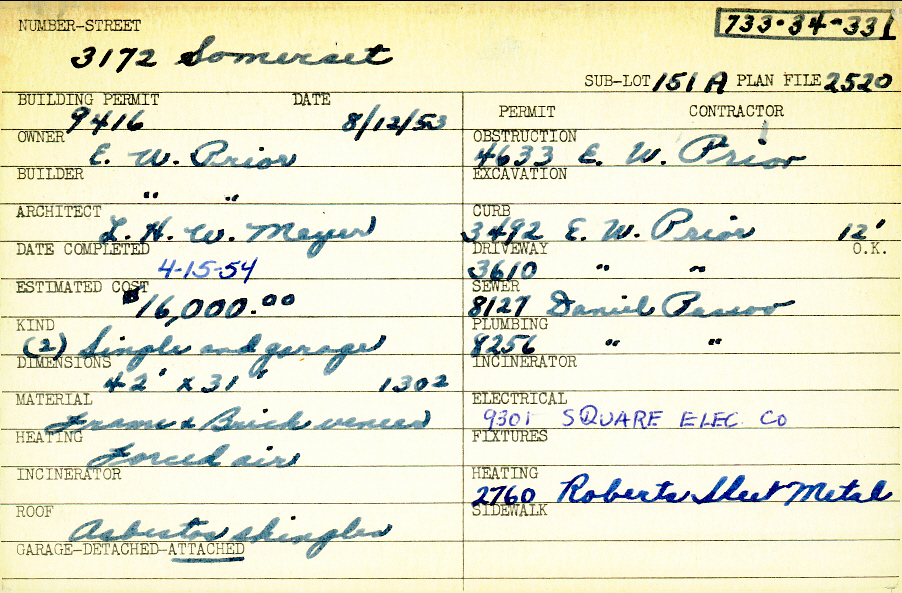 NUMBER-STREET
733-34-331
3172 Somerset
SUB-LOT 151 A PLAN FILE 2520
BUILDING PERMIT DATE
9416 8/12/53
OWNER
E. W. Prior
BUILDER
" "
ARCHITECT
L. H. W. Meyer
DATE COMPLETED
4-15-54
ESTIMATED COST
$16,000.00
KIND
(2) Single and garage
DIMENSIONS
42' x 31' 1302
MATERIAL
Frame & Brick veneer
HEATING
Forced air
INCINERATOR
ROOF
Asbestos shingles
GARAGE-DETACHED-ATTACHED
PERMIT CONTRACTOR
OBSTRUCTION
4633 E. W. Prior
EXCAVATION
CURB
3492 E. W. Prior 12'
DRIVEWAY O.K.
3610 " "
SEWER
8127 Daniel
PLUMBING
8256 " "
INCINERATOR
ELECTRICAL
9301 SQUARE ELEC. CO
FIXTURES
HEATING
2760 Roberts Sheet Metal
SIDEWALK